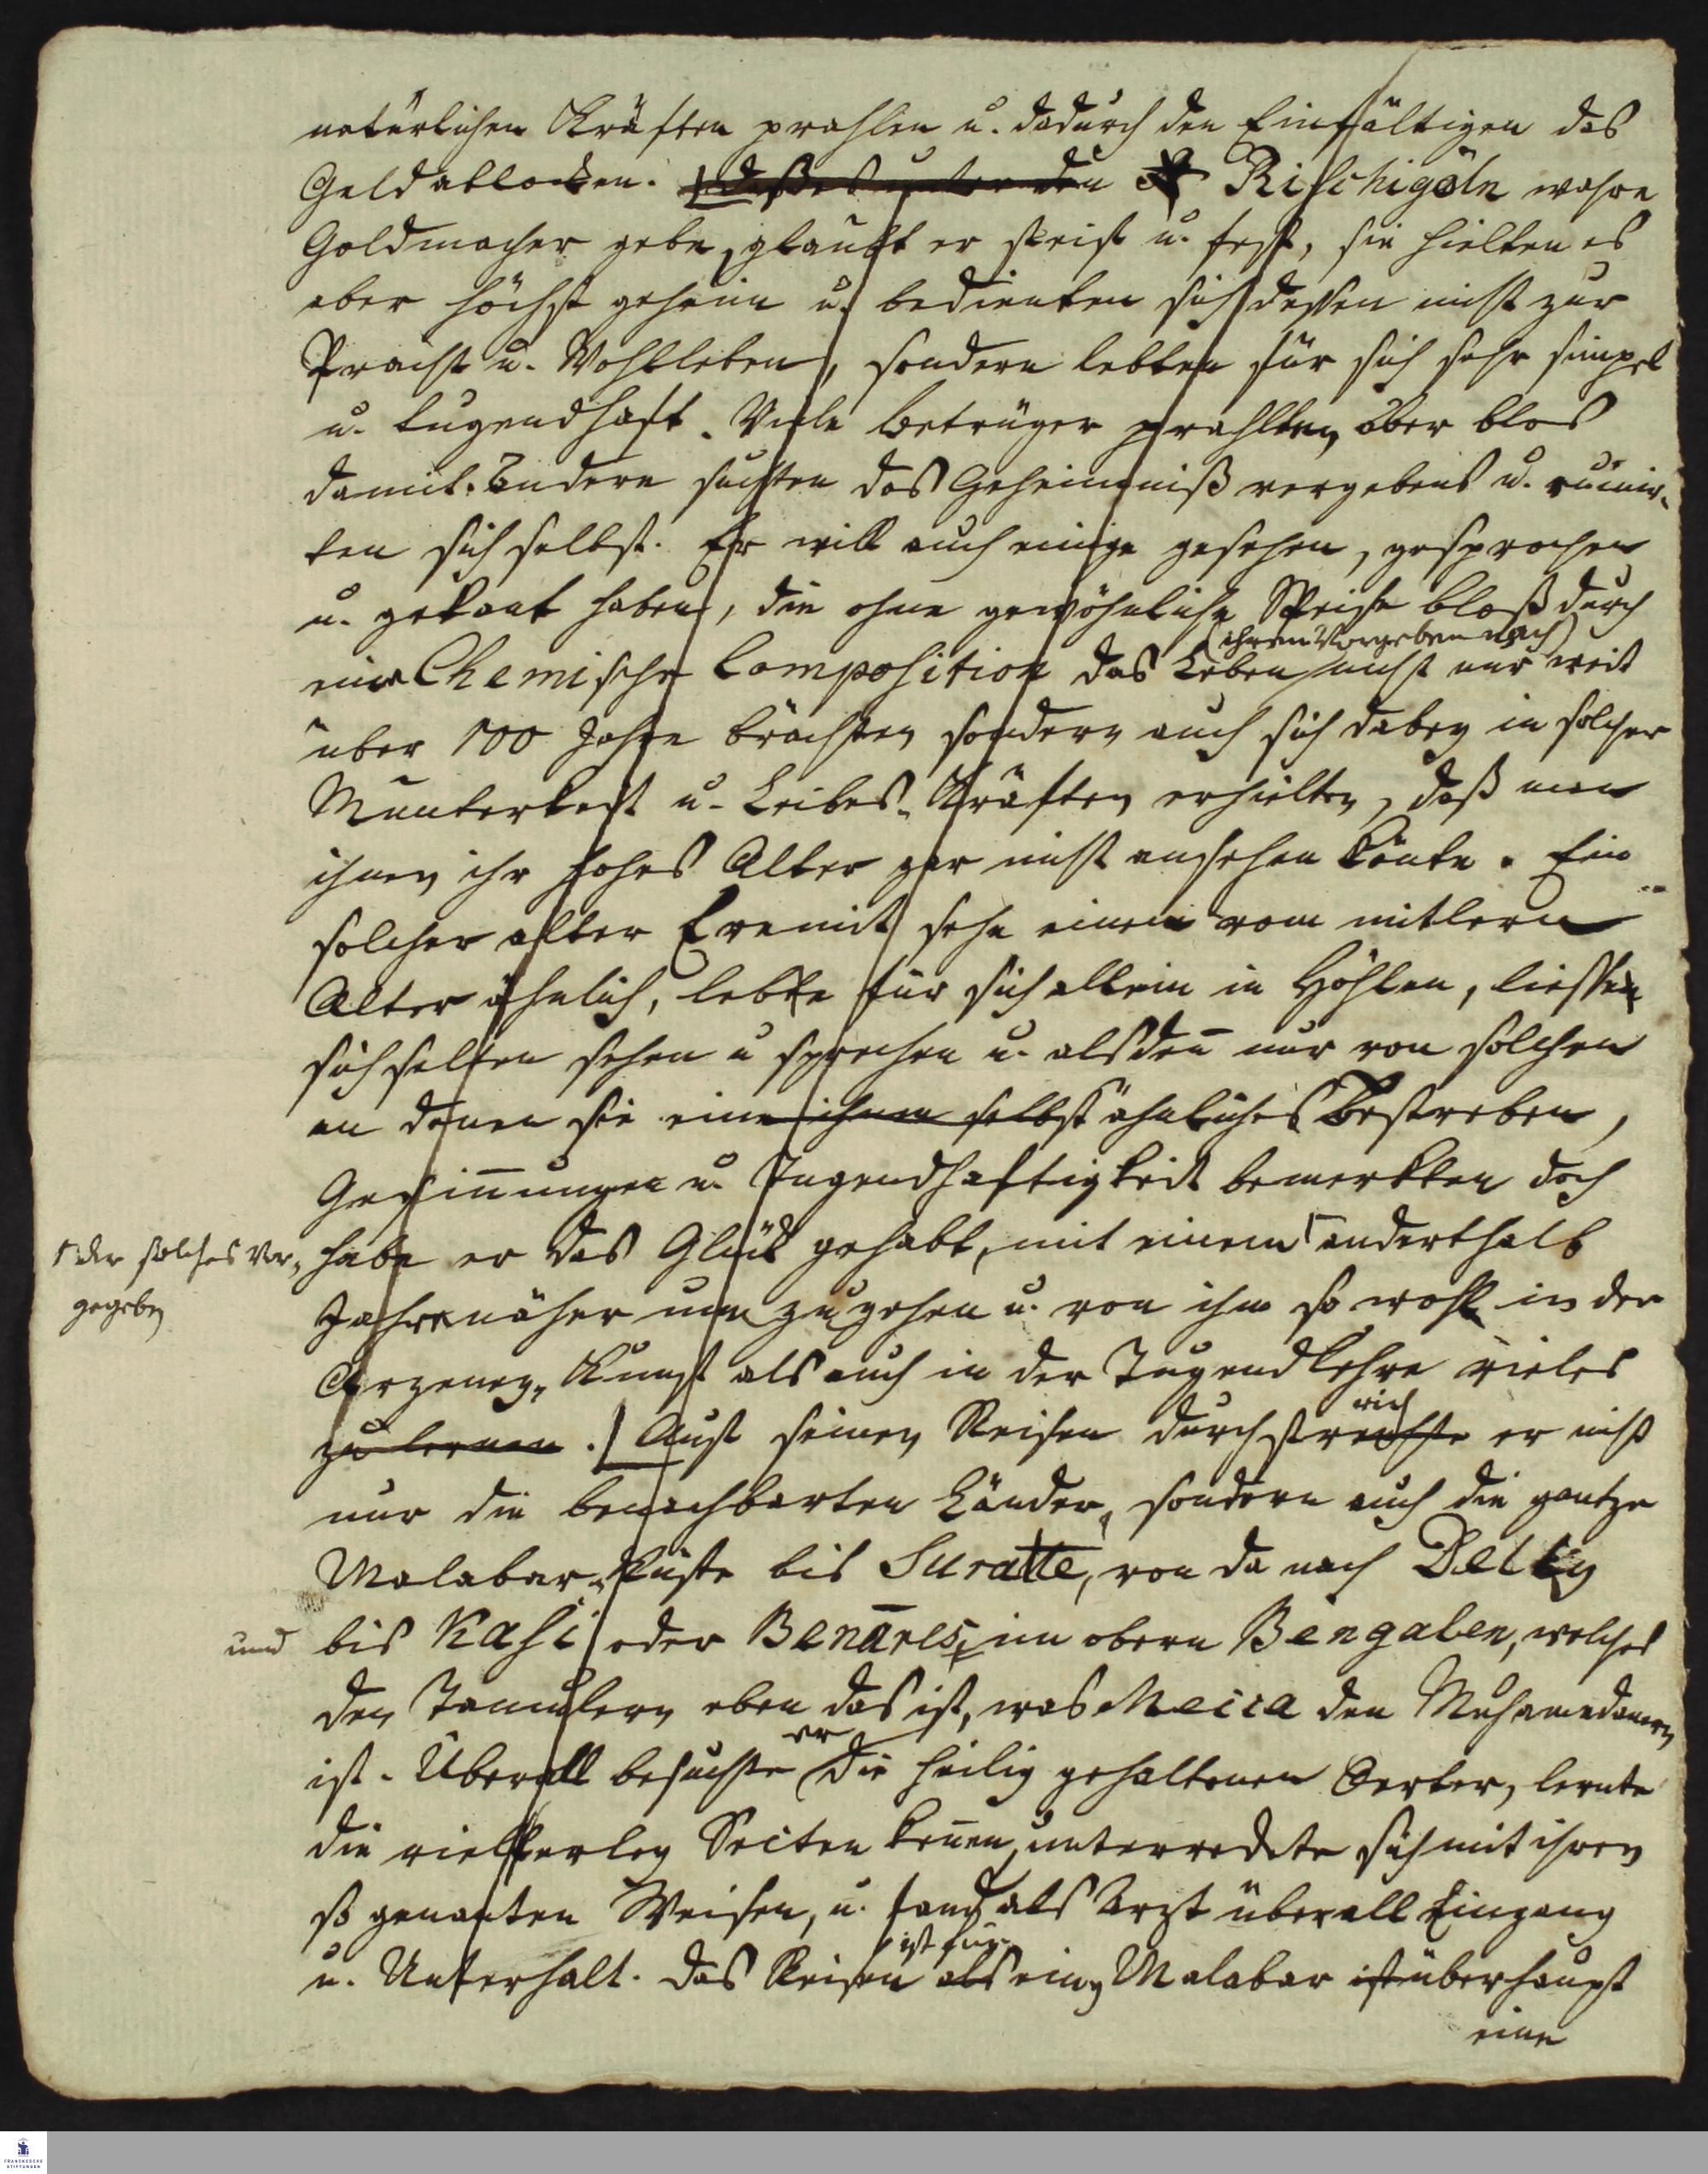 natürlichen Kräften prahlen u. dadurch den Einfältigen das
Geld ablocken. daß es unter den Rischigöln wahre
Goldmacher gebe, glaubt er steif u. fest, sie hielten es
aber höchst geheim u. bedienten sich dessen nicht zur
Pracht u. Wohlleben, sondern lebten für sich sehr simpel
u. tugendhaft. Viele Betrüger prahlten aber blos
damit. Andere suchten das Geheimniß vergebens u. ruinir„
ten sich selbst. Er will auch einige gesehen, gesprochen
u. gekant haben, die ohne gewöhnliche Speise bloß durch
eine Chemische Composition das Leben (ihrem Vorgeben nach) nicht nur weit
über 100 Jahre brächten sondern auch sich dabey in solcher
Munterkeit u. Leibes„Kräften erhielten, daß man
ihnen ihr hohes Alter gar nicht ansehen könte. Ein
solcher alter Eremit sehe einem vom mitlern
Alter ähnlich, lebte für sich allein in Höhlen, liesse
sich selten sehen u sprechen u. alsden̄ nur von solchen
an denen sie eine ihnen selbst ähnliches Bestreben,
Gesin̄ungen u. Tugendhaftigkeit bemerkten doch
habe er das Glück gehabt, mit einem anderthalb
der solches vor„
gegeben
Jahre näher um zu gehen u. von ihm so wohl in der
Arzeney„Kunst als auch in der Tugendlehre vieles
zu lernen. Aust seinen Reisen durchstrich er nicht
nur die benachbarten Länder, sondern auch die gantze
Malabar„Küste bis Suratte, von da nach Delly
und bis Kasi oder Benares, im obern Bengalen, welches
den Tamulern eben das ist, was Mecca den Muhamedanern
ist. Überall besuchte er die heilig gehaltenen Oerter, lernte
die vielerley Secten ken̄en, unterredete sich mit ihren
so genanten Weisen, u. fand als Arzt überall Eingang
u. Unterhalt. Das Reisen ist für als einen Malabar ist überhaupt
eine
FRANCKESCHE
STIFTUNGEN